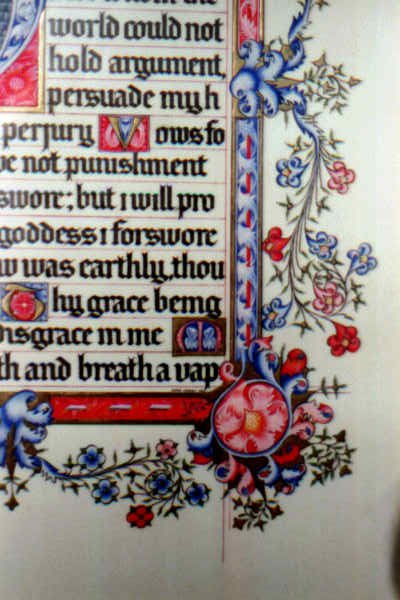 world could not
hold argument,
persuade my h
perjury Vows fo
ve not punishment
swore; but i will pro
goddess i forswore
w was earthly, thou
Thy grace being
disgrace in me
th and breath a vap